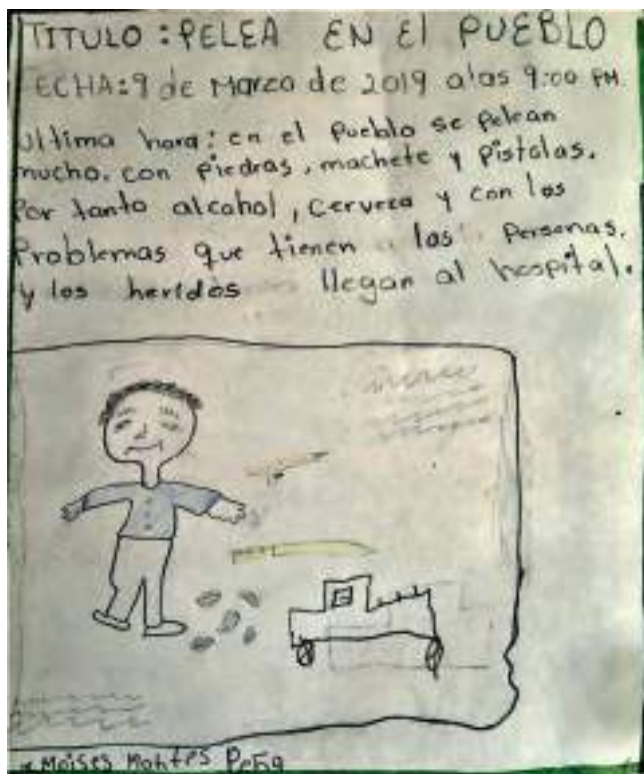 TITULO : PELEA EN El PUEBLO
FECHA: 9 de Marzo de 2019 a las 9:00 PM.
Ultima hora: en el Pueblo se pelean
mucho. con piedras, machete y Pistolas.
Por tanto alcohol, Cerveza y con los
Problemas que tienen las Personas.
y los heridos llegan al hospital.
Moises Montes Peña